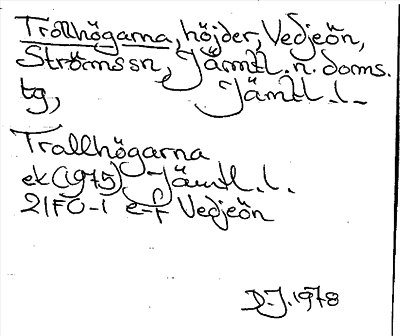 Trollhögarna, höjder, Vedjeön,
Strömssn, Jämtl. n. doms.
tg, Jämtl. l.
Trallhögarna
ek (1975) Jämtl. l.
21F0-1 e-f Vedjeön
D.J. 1978